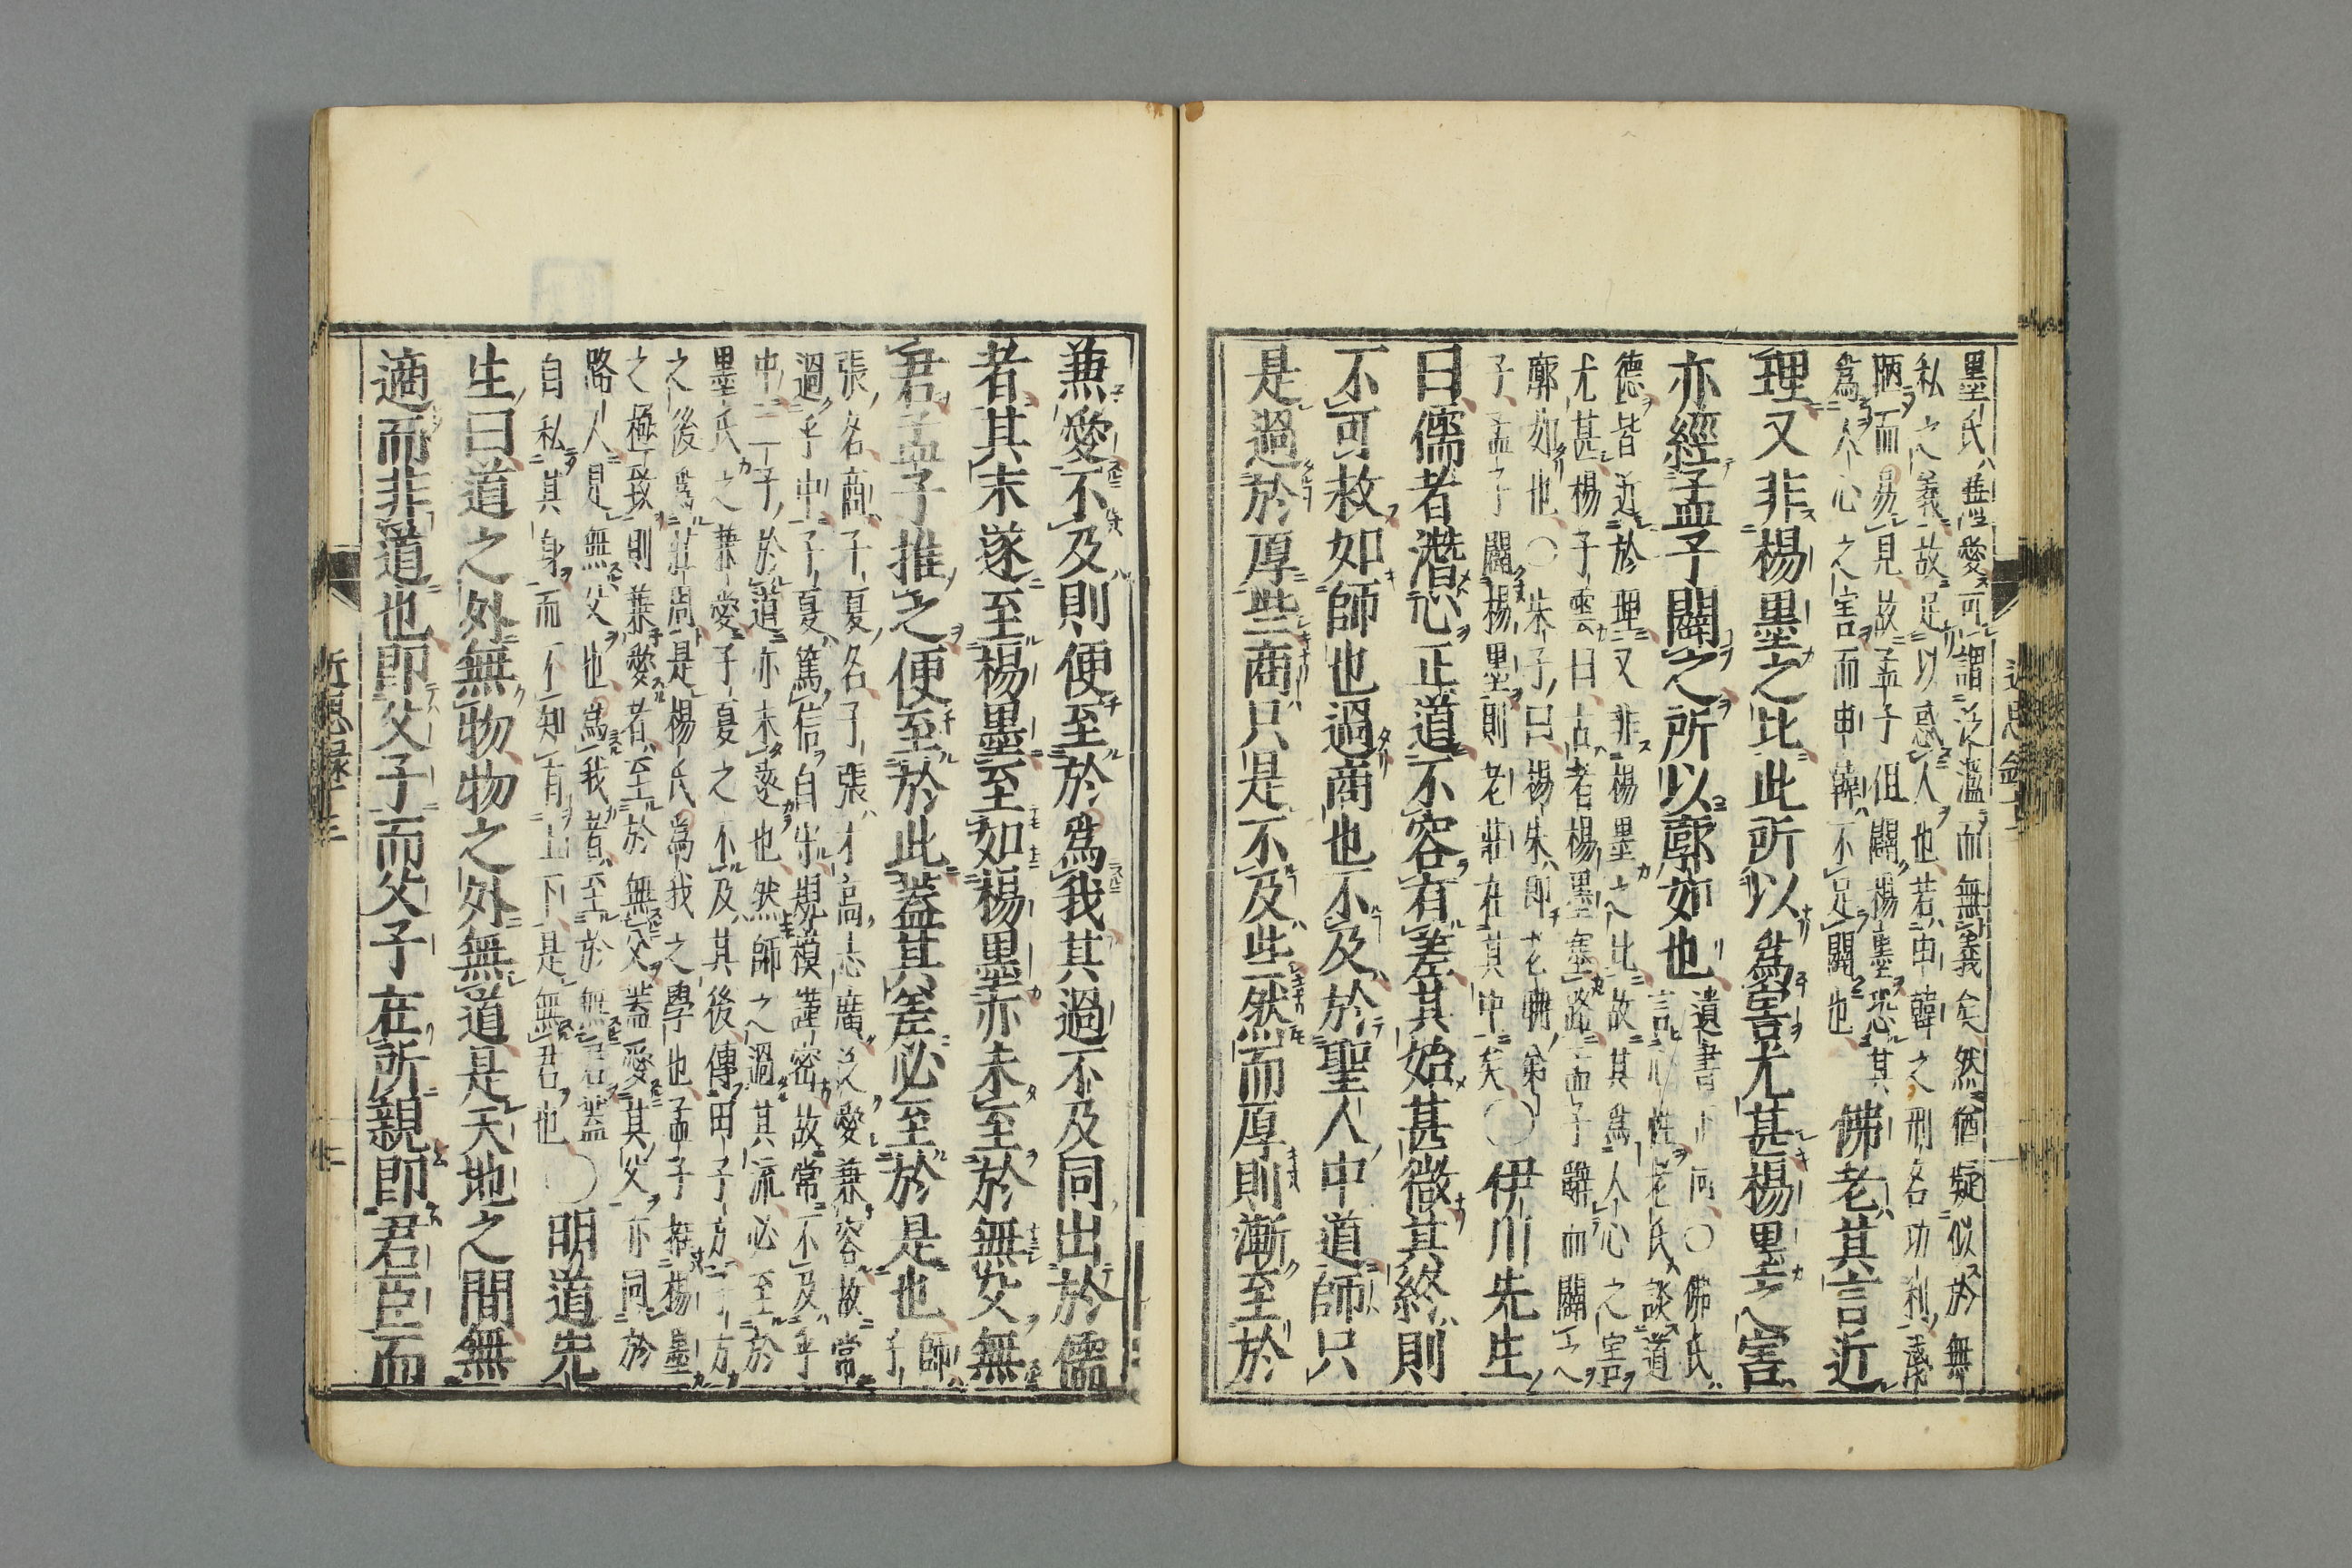 墨氏兼愛可謂泛濫而無義矣然猶疑似於無
私之義故足以惑人也若申韓之刑名功利淺
陋而易見故孟子但闢楊墨恐其
爲人心之害而申韓不足闢也
佛老其言近
理又非楊墨之比此所以爲害尤甚楊墨之害
亦經孟子闢之所以廓如也
遺書下同○佛氏
言心性老氏談道
德皆近於理又非楊墨之比故其爲人心之害
尤甚楊子雲曰古者楊墨塞路孟子辭而闢之
廓如也○朱子曰楊朱即老聃弟
子孟子闢楊墨則老莊在其中矣
○伊川先生
曰儒者潛心正道不容有差其始甚微其終則
不可救如師也過商也不及於聖人中道師只
是過於厚些商只是不及些然而厚則漸至於
兼愛不及則便至於爲我其過不及同出於儒
者其末遂至楊墨至如楊墨亦未至於無父無
君孟子推之便至於此蓋其差必至於是也
師
子
張名商子夏名子張才高志廣泛愛兼容故常
過乎中子夏篤信自守規模謹密故常不及乎
中二子於道亦未遠也然師之過其流必至於
墨氏之兼愛子夏之不及其後傳田子方子方
之後爲莊周是楊氏爲我之學也孟子推楊墨
之極致則兼愛者至於無父蓋愛其父亦同於
路人是無父也爲我者至於無君蓋
自私其身而不知有上下是無君也
○明道先
生曰道之外無物物之外無道是天地之間無
適而非道也即父子而父子在所親即君臣而
近思録十三